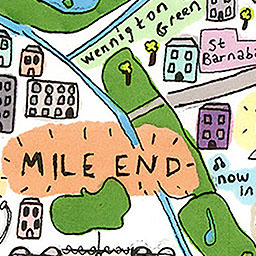 Wennigton
Green
St
Barnaba
MILE END
now
in